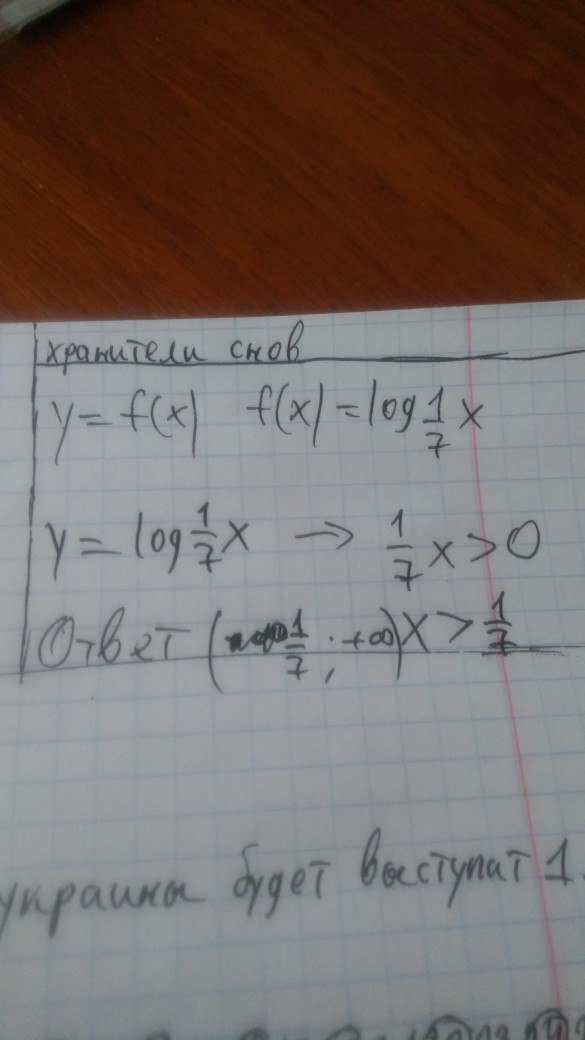 хранители снов
y = f(x) f(x) = log 1/7 x
y = log 1/7 x → 1/7 x > 0
Ответ ( 1/7 ; +∞) x > 1/7
украины будет выступат 1.